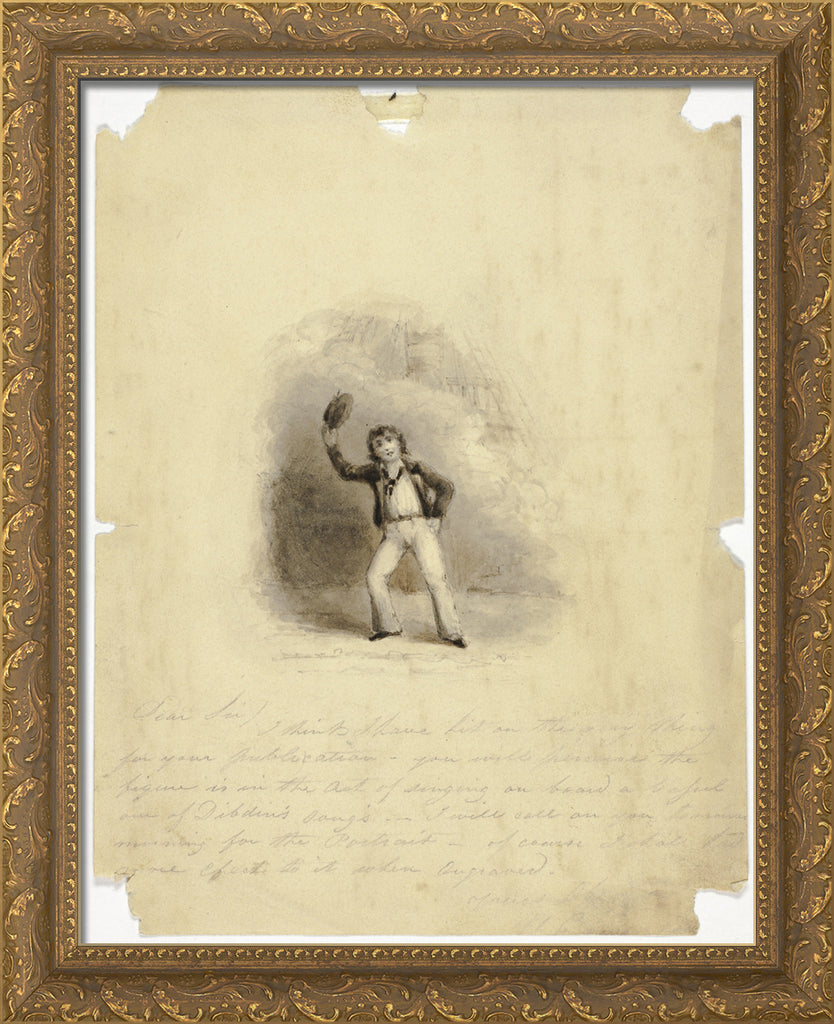 Dear Sir,
I think I have hit on the very thing
for your publication - you will perceive the
figure is in the act of singing on board a vessel
one of Dibdin's songs. - I will call on you tomorrow
morning for the Portrait - of course I shall
give effect to it when Engraved.